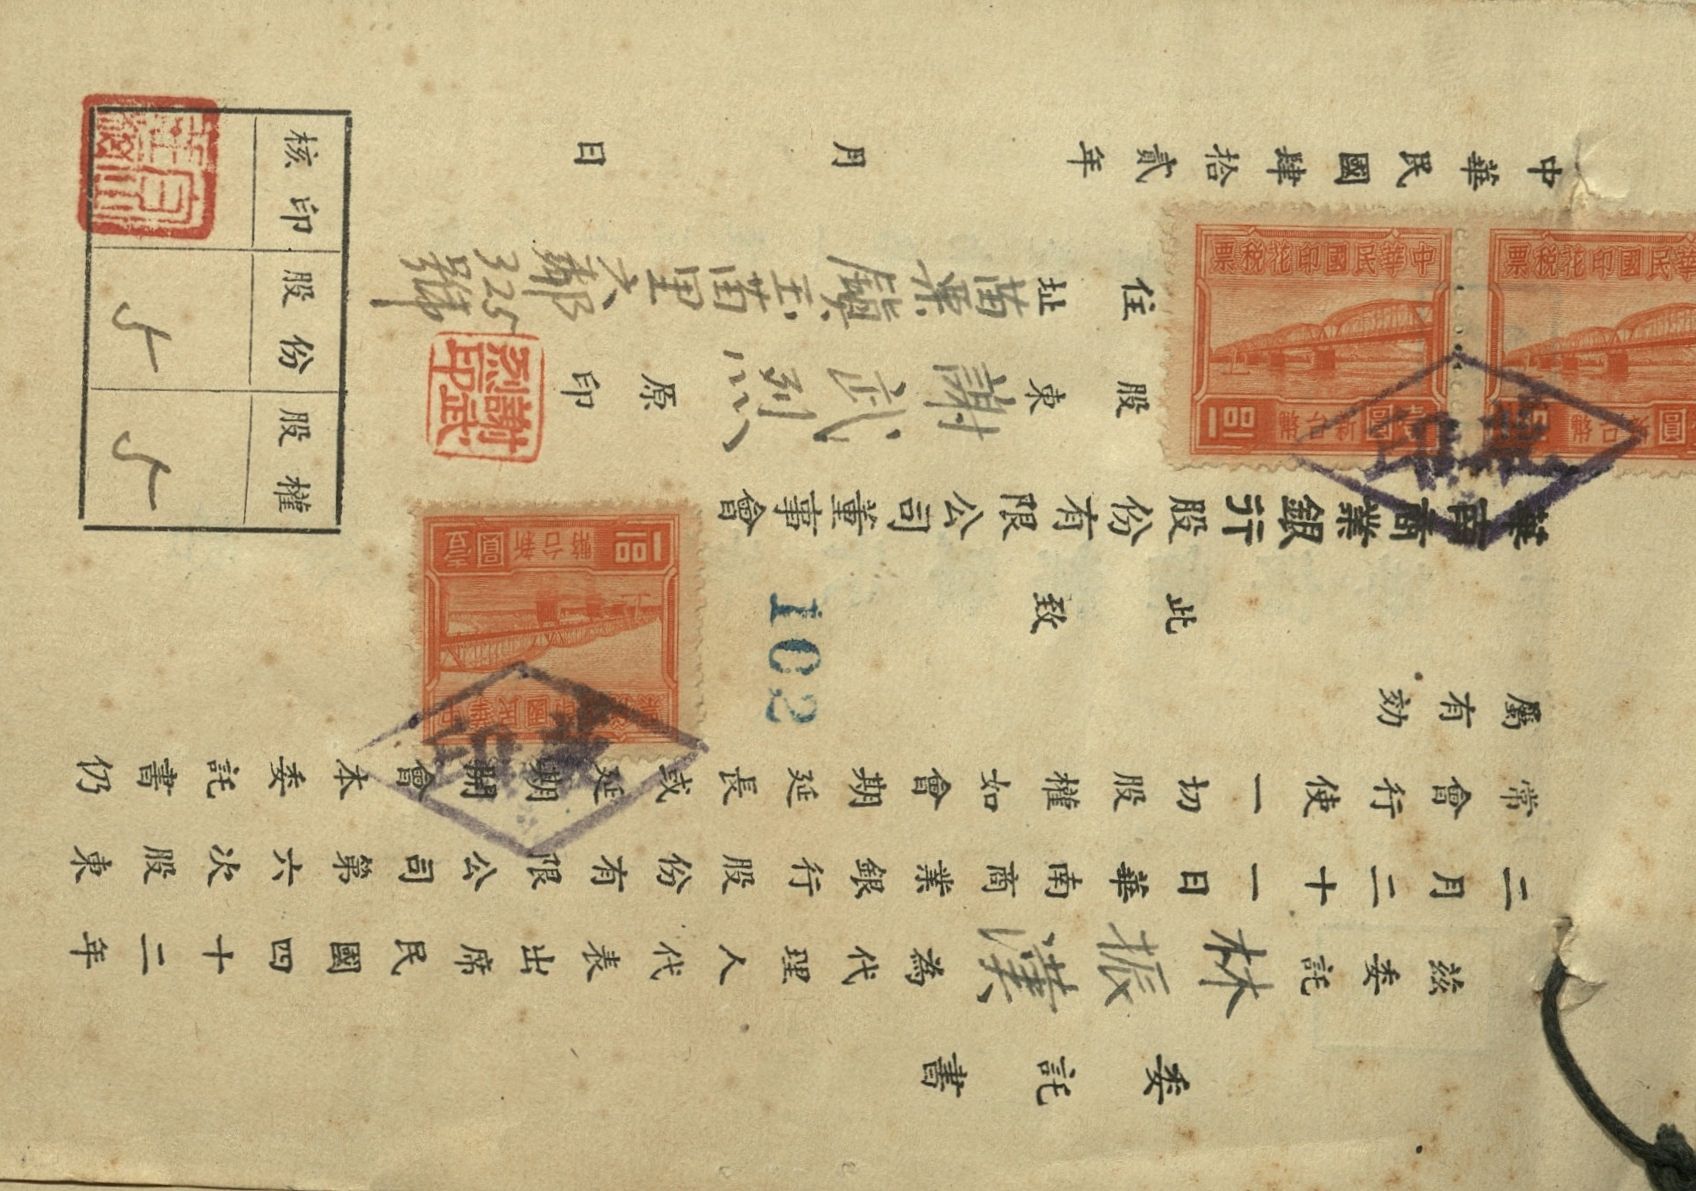 委託書
茲委託林振漢為代理人代表出席民國四十二年
二月二十一日華南商業銀行股份有限公司第六次股東
常會行使一切股權如會期延長或延期開會本委託書仍
屬有効
此致
102
華南商業銀行股份有限公司董事會
股東 謝武烈 原印
謝武烈印
住址 苗栗鎮玉苗里六鄰325號
中華民國肆拾貳年 月 日
核印 股份 股權
5 5
中華民國印花稅票
壹圓 新台幣
中華民國印花稅票
圓 新台幣
中華民國印花稅票
新台幣 壹圓